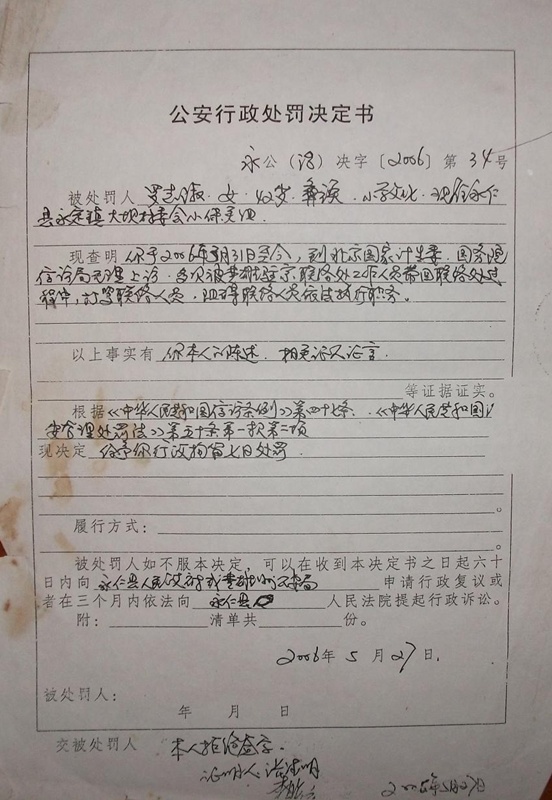 公安行政处罚决定书
永公（治）决字〔2006〕第34号
被处罚人 罗志淑．女．42岁．彝族．小学文化．现住永仁
县永定镇大坝村委会小保关组
现查明 你于2006年3月31日至今，到北京国家计生委．国务院
信访局无理上访．多次被楚雄驻京联络处工作人员带回联络处过
程中，打骂联络人员．阻碍联络人员依法执行职务。
以上事实有 你本人的陈述．相关证人证言．
等证据证实。
根据《中华人民共和国信访条例》第四十七条．《中华人民共和国治
安管理处罚法》第五十条第一款第二项
现决定 给予你行政拘留七日处罚
。
履行方式： 。
被处罚人如不服本决定，可以在收到本决定书之日起六十
日内向 永仁县人民政府或楚雄州公安局 申请行政复议或
者在三个月内依法向 永仁县 人民法院提起行政诉讼。
附： 清单共 份。
2006年 5 月 27 日．
被处罚人：
年 月 日
交被处罚人 本人拒绝签字．
证明人：
2006年5月27日